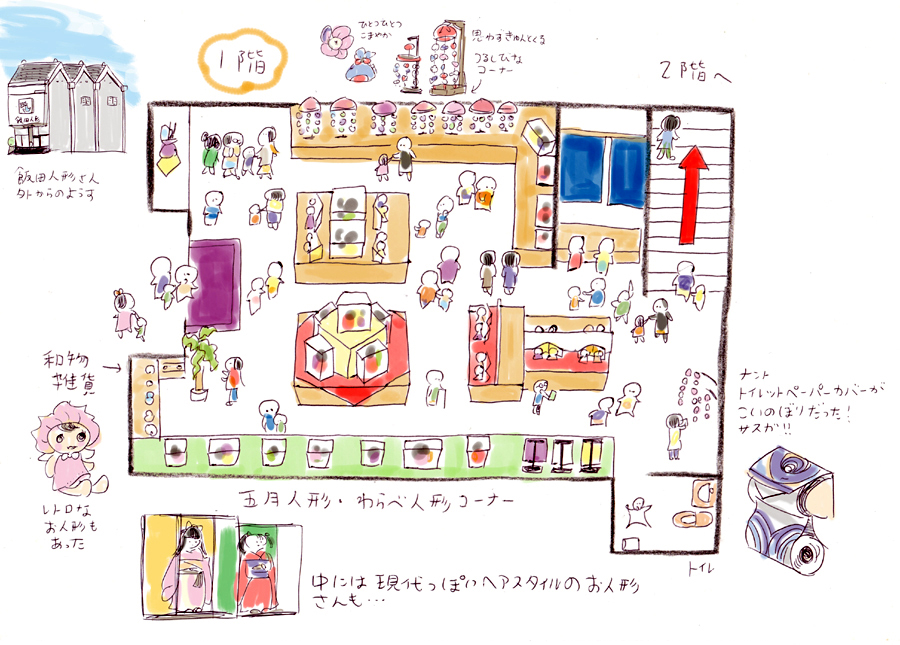 1階
ひとつひとつ
こまやか
思わずきゅんとくる
つるしびな
コーナー
2階へ
飯田人形
飯田人形さん
外からのようす
和物
雑貨
レトロな
お人形も
あった
ナント
トイレットペーパーカバーが
こいのぼりだった!
サスガ!!
五月人形・わらべ人形コーナー
トイレ
中には現代っぽいヘアスタイルのお人形
さんも…